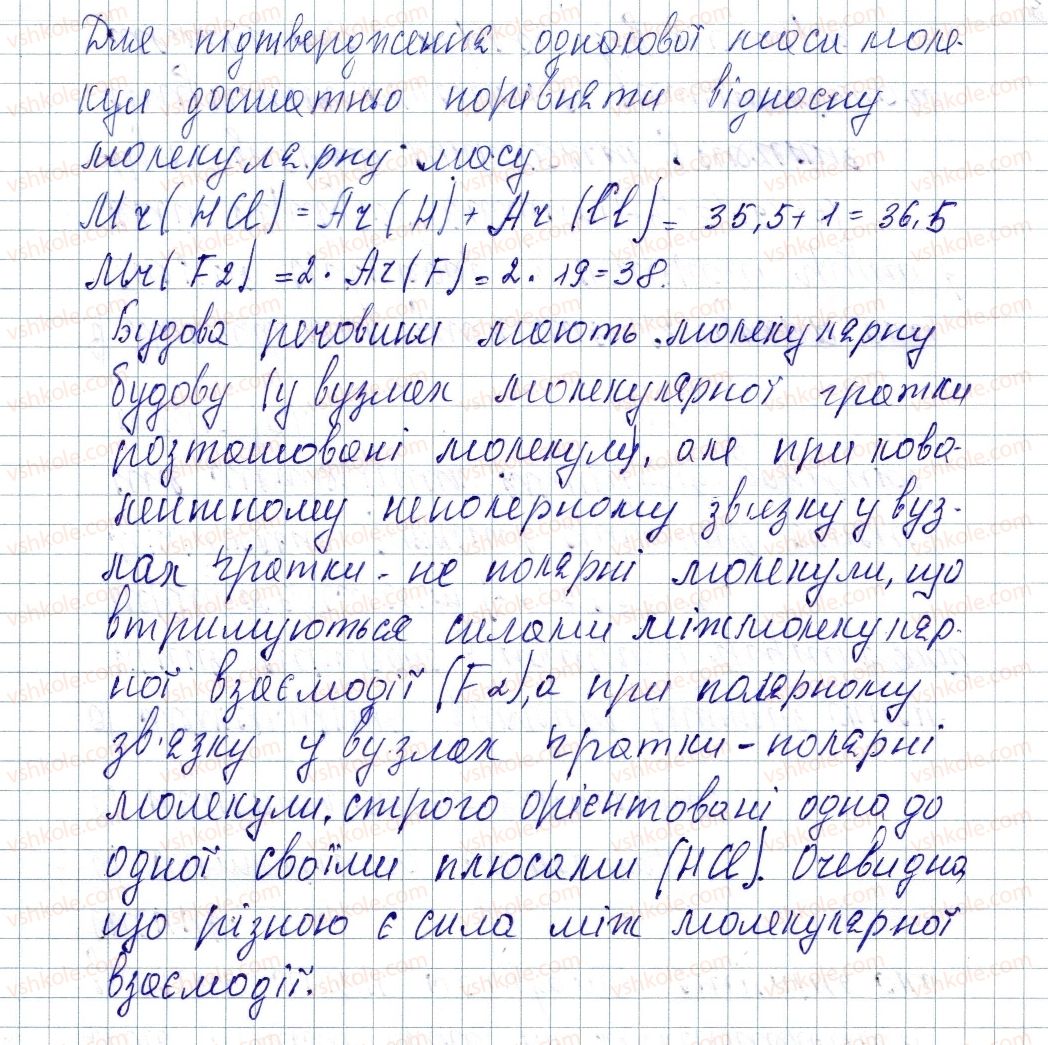 Для підтвердження однакової маси моле-
кул достатньо порівняти відносну
молекулярну масу.
Mr(HCl) = Ar(H) + Ar(Cl) = 35,5 + 1 = 36,5
Mr(F2) = 2 · Ar(F) = 2 · 19 = 38.
Будова речовини мають молекулярну
будову (у вузлах молекулярної гратки
розташовані молекули), але при кова-
лентному неполярному звязку у вуз-
лах гратки - не полярні молекули, що
втримуються силами міжмолекуляр-
ної взаємодії (F2), а при полярному
зв'язку у вузлах гратки - полярні
молекули, строго орієнтовані одна до
одної своїми плюсами (HCl). Очевидна,
що різною є сила між молекулярної
взаємодії.